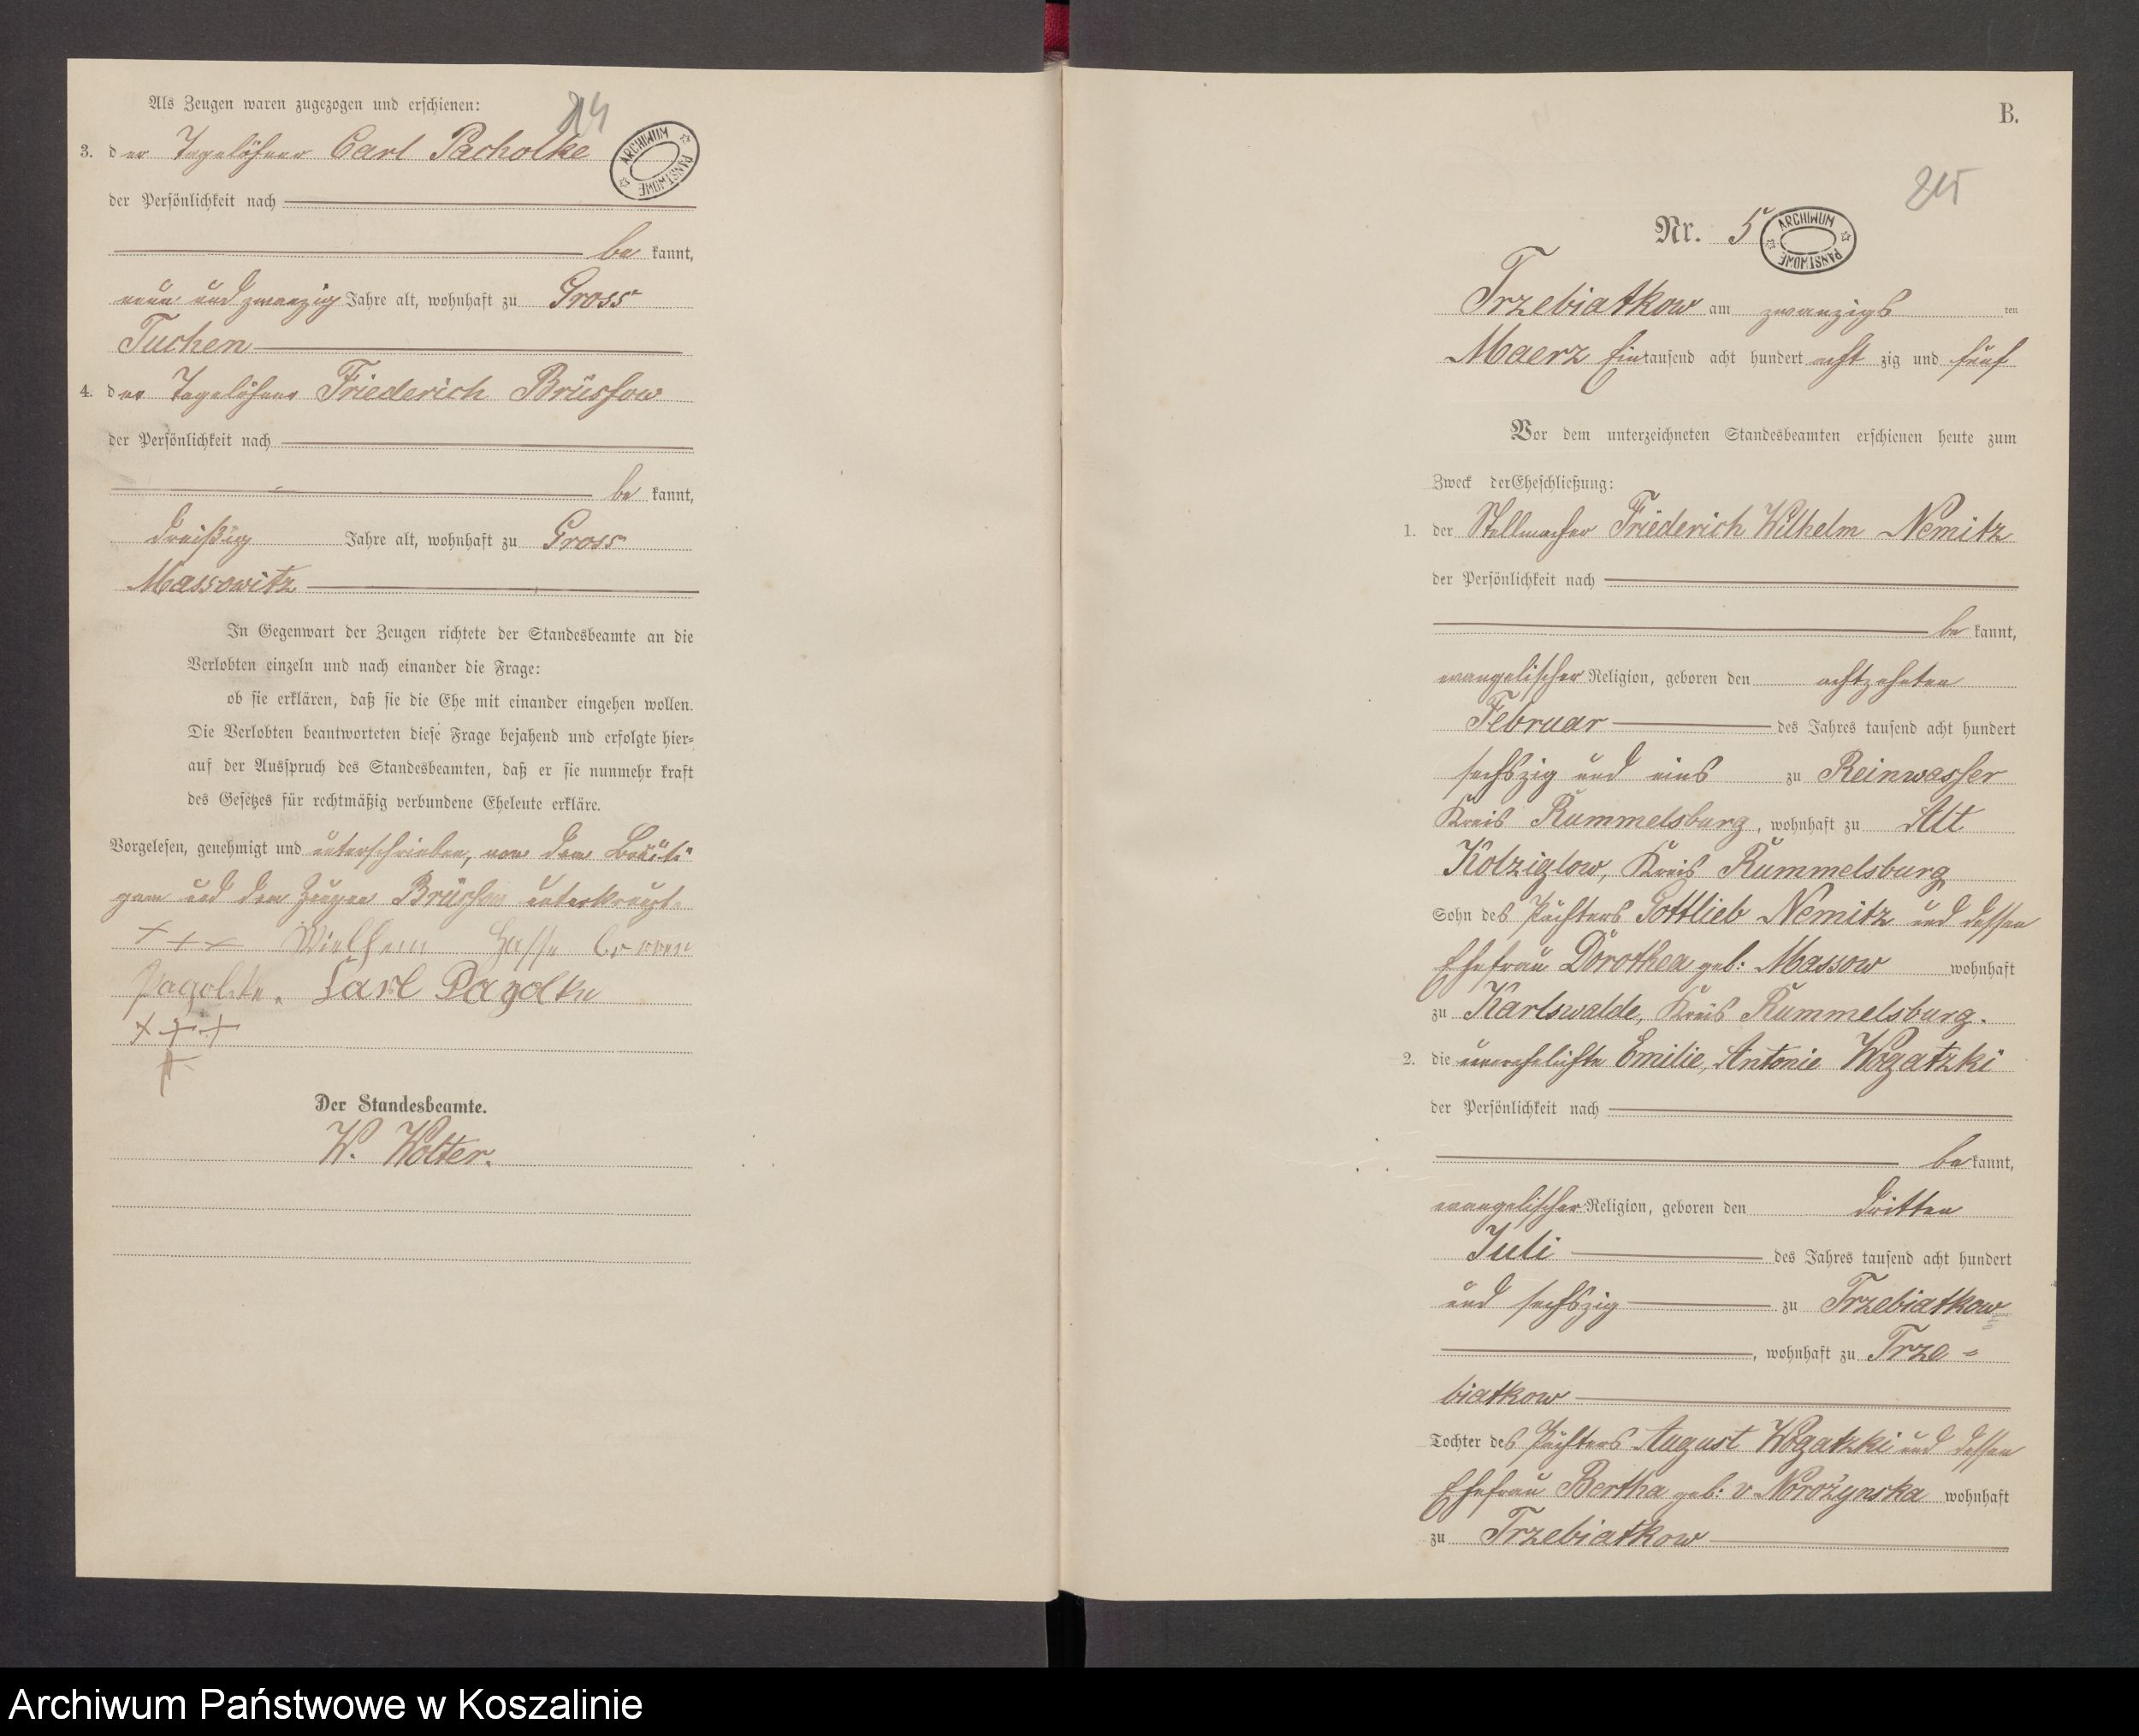 Als Zeugen waren zugezogen und erschienen:
214
3. der Tagelöhner Carl Pacholke
ARCHIWUM PAŃSTWOWE
der Persönlichkeit nach
be kannt,
neun und zwanzig Jahre alt, wohnhaft zu Gross
Tuchen
4. der Tagelöhner Friederich Brüssow
der Persönlichkeit nach
be kannt,
dreißig Jahre alt, wohnhaft zu Gross
Massowitz
In Gegenwart der Zeugen richtete der Standesbeamte an die
Verlobten einzeln und nach einander die Frage:
ob sie erklären, daß sie die Ehe mit einander eingehen wollen.
Die Verlobten beantworteten diese Frage bejahend und erfolgte hier=
auf der Ausspruch des Standesbeamten, daß er sie nunmehr kraft
des Gesetzes für rechtmäßig verbundene Eheleute erkläre.
Vorgelesen, genehmigt und unterschrieben, von dem Bräuti
gam und dem Zeugen Brüssow unterkreuzt.
+++
Carl Pagolke
+++
Der Standesbeamte.
W. Wolter.
B.
215
Nr. 5
ARCHIWUM PAŃSTWOWE
Trzebiatkow am zwanzigs ten
Maerz Eintausend acht hundert acht zig und fünf
Vor dem unterzeichneten Standesbeamten erschienen heute zum
Zweck der Eheschließung:
1. der Stellmacher Friederich Wilhelm Nemitz
der Persönlichkeit nach
be kannt,
evangelischer Religion, geboren den achtzehnten
Februar des Jahres tausend acht hundert
sechszig und eins zu Reinwasser
Kreis Rummelsburg, wohnhaft zu Alt
Kolziglow, Kreis Rummelsburg
Sohn des Pächters Gottlieb Nemitz und dessen
Ehefrau Dorothea geb: Massow wohnhaft
zu Karlswalde, Kreis Rummelsburg.
2. die unverehelichte Emilie, Antonie Wogatzki
der Persönlichkeit nach
be kannt,
evangelischer Religion, geboren den dritten
Juli des Jahres tausend acht hundert
und sechszig zu Trzebiatkow
, wohnhaft zu Trze=
biatkow
Tochter des Pächters August Wogatzki und dessen
Ehefrau Bertha geb: v Norożynska wohnhaft
zu Trzebiatkow
Archiwum Państwowe w Koszalinie